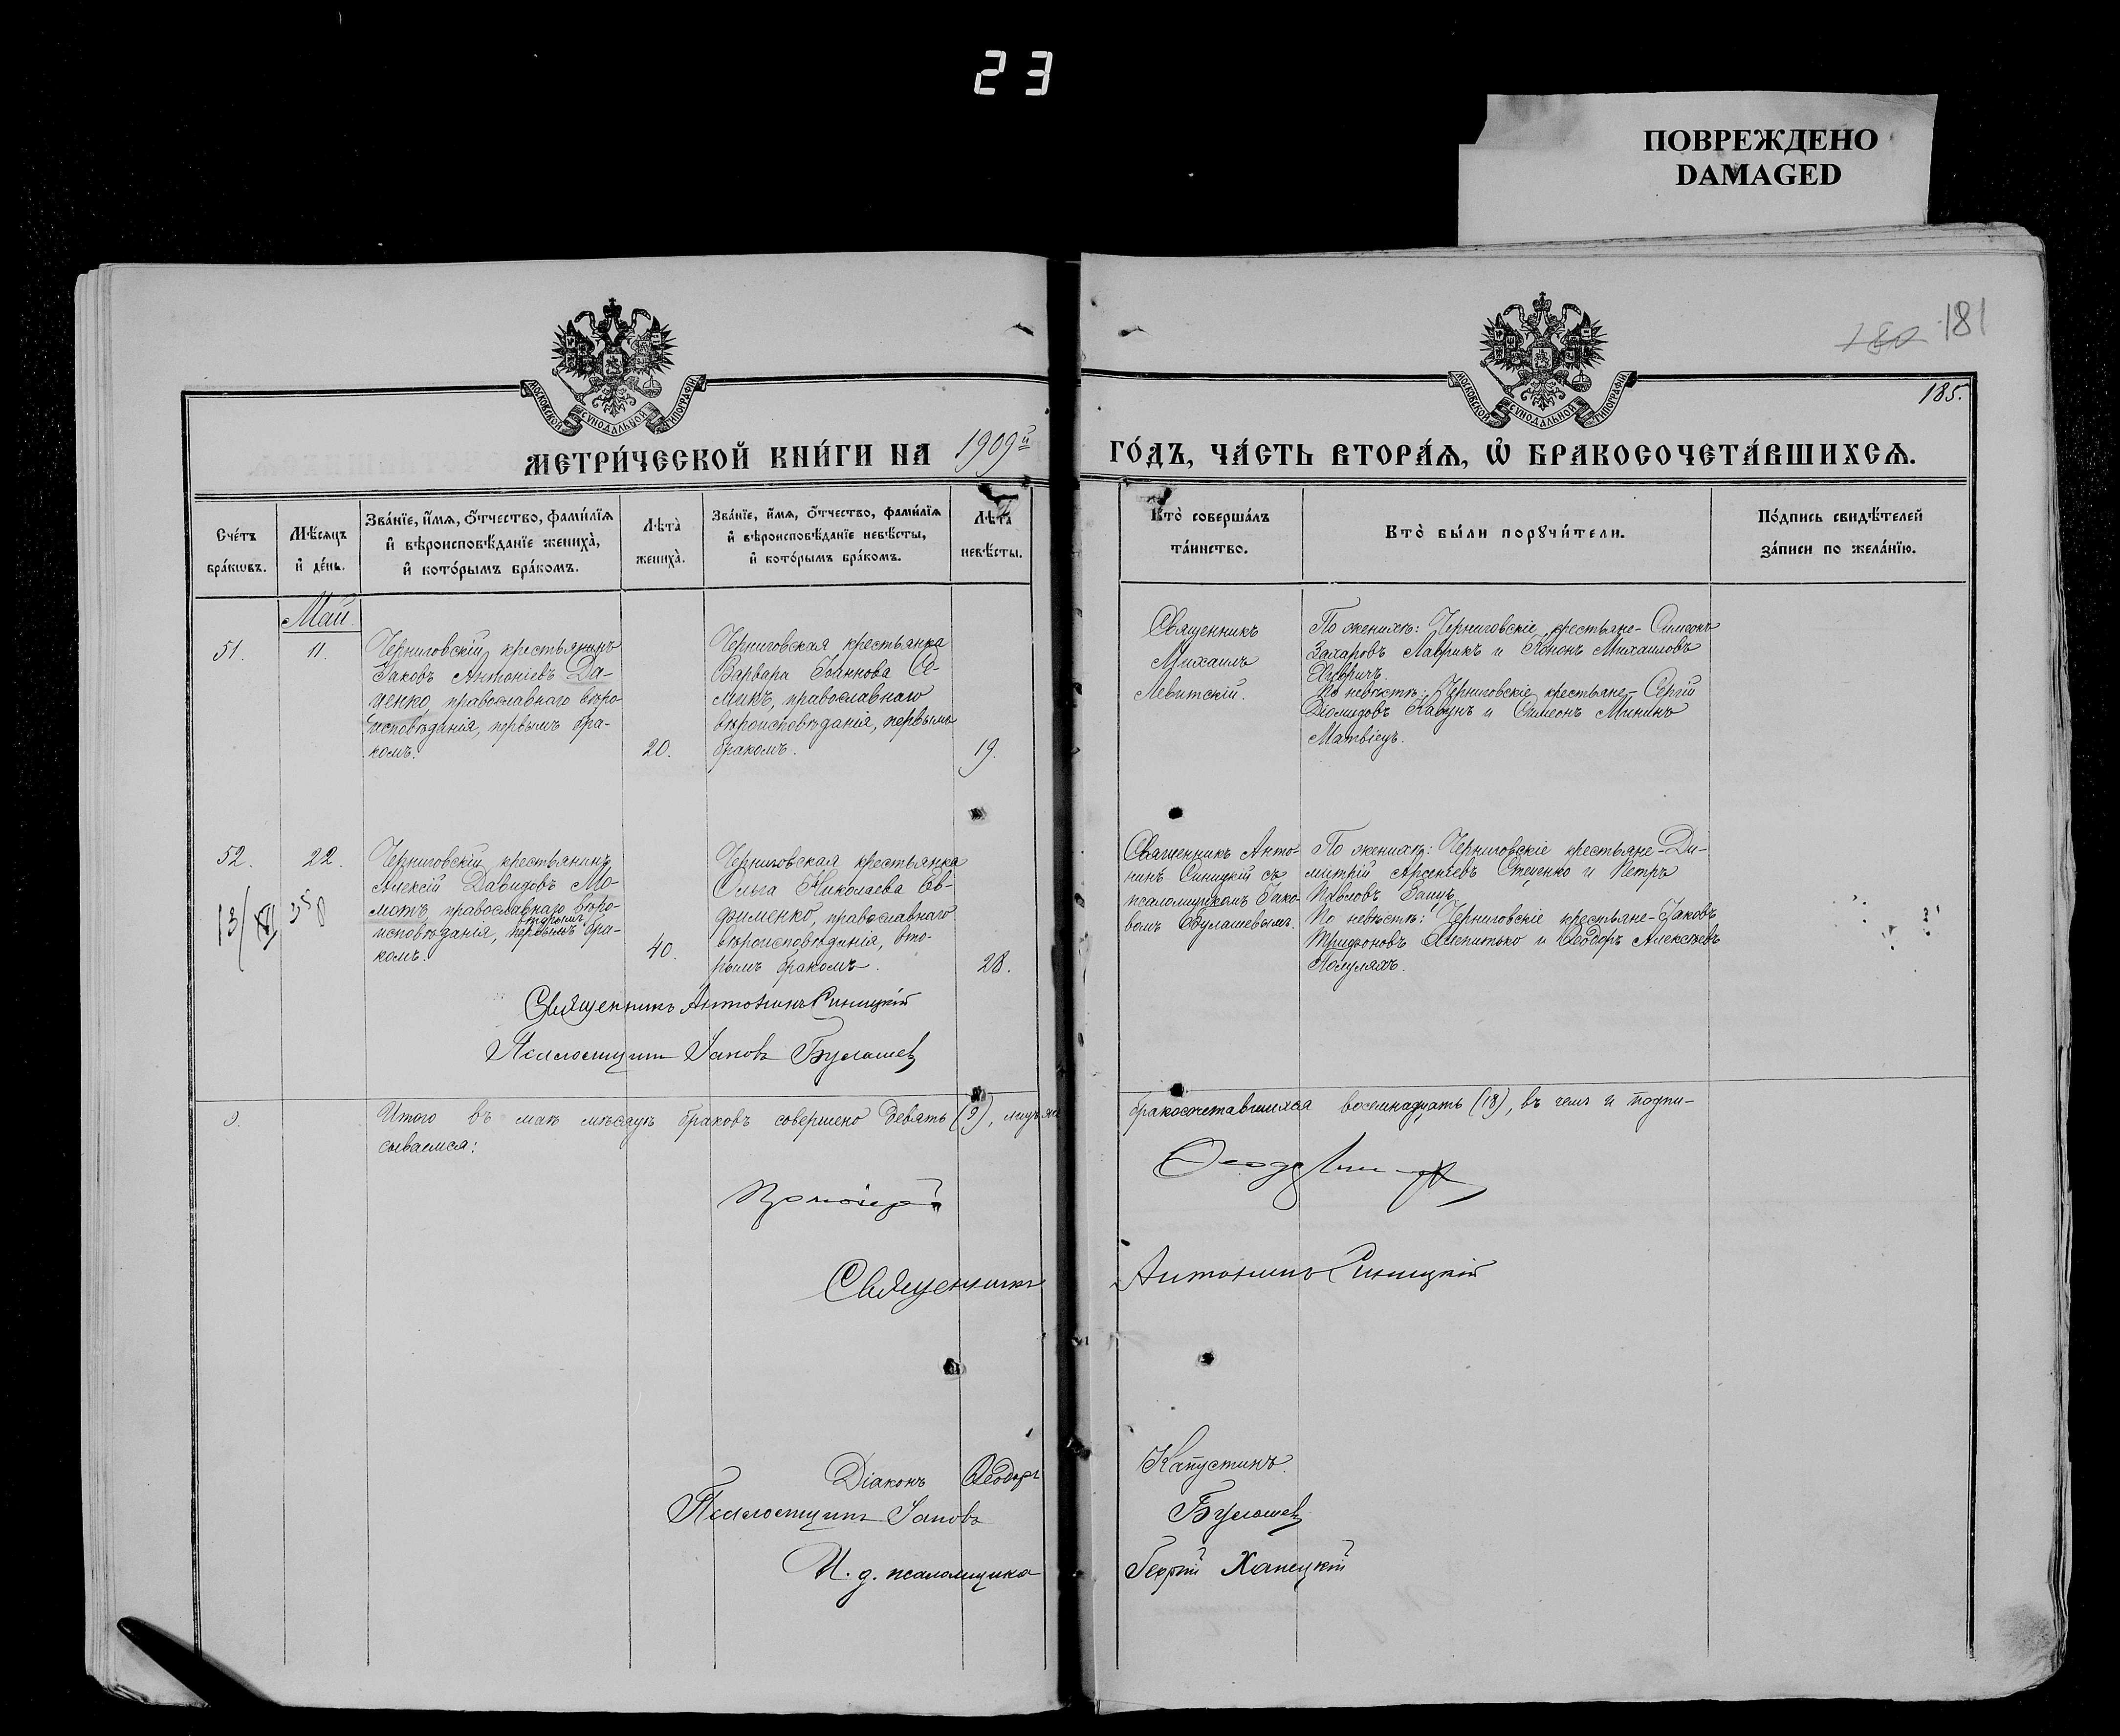 23
ПОВРЕЖДЕНО
DAMAGED
МОСКОВСКОЙ СУНОДАЛЬНОЙ ТИПОГРАФІИ
МОСКОВСКОЙ СУНОДАЛЬНОЙ ТИПОГРАФІИ
180 181
185.
МЕТРИ́ЧЕСКОЙ КНИ́ГИ НА 1909й ГО́ДЪ, ЧА́СТЬ ВТОРА́Я, Ѡ҆ БРАКОСОЧЕТА́ВШИХСЯ.
Сче́тъ бра́кѡвъ.
Мѣ́сяцъ и҆ де́нь.
Зва́нїе, и҆́мѧ, ѻ҆́тчество, фами́лїѧ и҆ вѣроисповѣ́данїе жениха̀, и҆ кото́рымъ бра́комъ.
Лѣта̀ жениха̀.
Зва́нїе, и҆́мѧ, ѻ҆́тчество, фами́лїѧ и҆ вѣроисповѣ́данїе невѣ́сты, и҆ кото́рымъ бра́комъ.
Лѣта̀ невѣ́сты.
Кто̀ соверша́лъ та́инство.
Кто̀ бы́ли порꙋчи́тели.
По́дпись свидѣ́телей за́писи по жела́нїю.
Май.
51.
11.
Черниговскій крестьянинъ
Яковъ Антоніевъ Да-
ценко, православнаго вѣро-
исповѣданія, первымъ бра-
комъ.
20.
Черниговская крестьянка
Варвара Іоаннова
православнаго
вѣроисповѣданія, первымъ
бракомъ.
19.
Священникъ
Михаилъ
Левитскій.
По женихѣ: Черниговскіе крестьяне - Симеонъ
Захаровъ Лаврикъ и Кононъ Михаиловъ
По невѣстѣ: Черниговскіе крестьяне - Сергій
Діомидовъ Кавунъ и Симеонъ Мининъ
Матвіецъ.
52.
22.
13/XII 350
Черниговскій крестьянинъ
Алексій Давидовъ Мо-
мотъ, православнаго вѣро-
вторымъ
исповѣданія, первымъ бра-
комъ.
40.
Черниговская крестьянка
Ольга Николаева Ев-
фименко, православнаго
вѣроисповѣданія, вто-
рымъ бракомъ.
28.
Священникъ Анто-
нинъ Синицкій съ
псаломщикомъ Іако-
вомъ Булашевымъ.
По женихѣ: Черниговскіе крестьяне - Ди-
митрій Арсеніевъ Стеценко и Петръ
Павловъ Заицъ.
По невѣстѣ: Черниговскіе крестьяне - Іаковъ
Трифоновъ и Ѳеодоръ Алексѣевъ
Священникъ Антонинъ Синицкій
Псаломщикъ Іаковъ Булашевъ
9.
Итого въ маѣ мѣсяцѣ браковъ совершено девять (9), лицъ же бракосочетавшихся восемнадцать (18), въ чемъ и подпи-
сываемся:
Протоіерей
Священникъ Антонинъ Синицкій
Діаконъ Ѳеодоръ Капустинъ.
Псаломщикъ Іаковъ Булашевъ
И. д. псаломщика Георгій Ханецкій